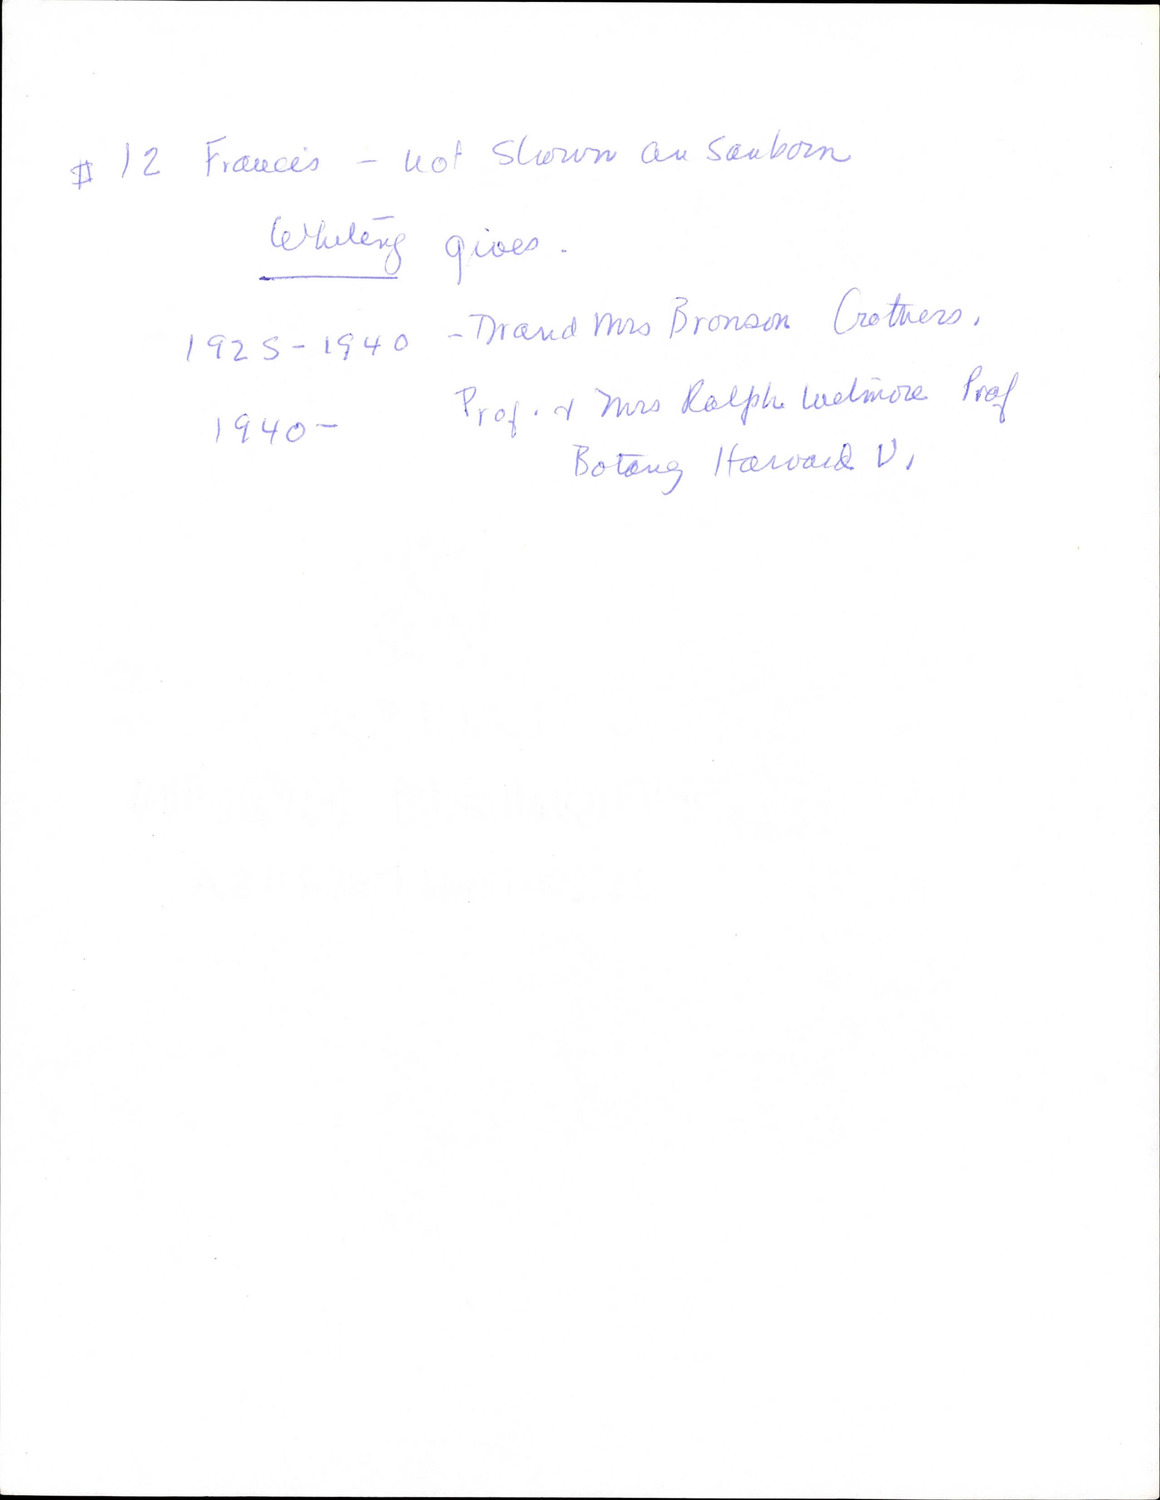 # 12 Francis - not shown on Sanborn
Whiting gives.
1925-1940 - Dr and Mrs Bronson Crothers.
1940- Prof. & Mrs Ralph Wetmore Prof
Botany Harvard U.